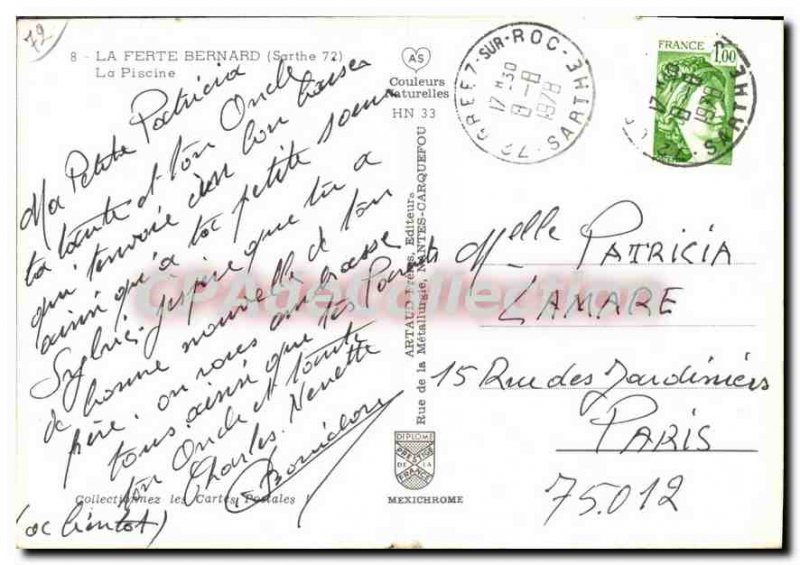 72
8 - LA FERTE BERNARD (Sarthe 72)
La Piscine
AS
Couleurs
Naturelles
HN 33
Ma Petite Patricia
ta tante et ton Oncle
qui t'envoie un bon baiser
ainsi qu'à ta petite soeur
Sylvie. j'espère que tu a
de bonne nouvelle de ton
père. on vous embrasse
tous ainsi que tes Parents
ton Oncle et tante
Charles. Nenette
(a bientot)
Collectionnez les Cartes Postales !
ARTAUD Frères, Editeurs
Rue de la Métallurgie, NANTES-CARQUEFOU
DIPLOME
PRESTIGE
DE LA
FRANCE
MEXICHROME
72 GREEZ-SUR-ROC - SARTHE
17 H 30
8 - 8
1978
FRANCE
1,00
17 H 30
8 - 8
1978
SARTHE
Melle PATRICIA
LAMARE
15 Rue des Jardiniers
PARIS
75.012
CPAdeCollection